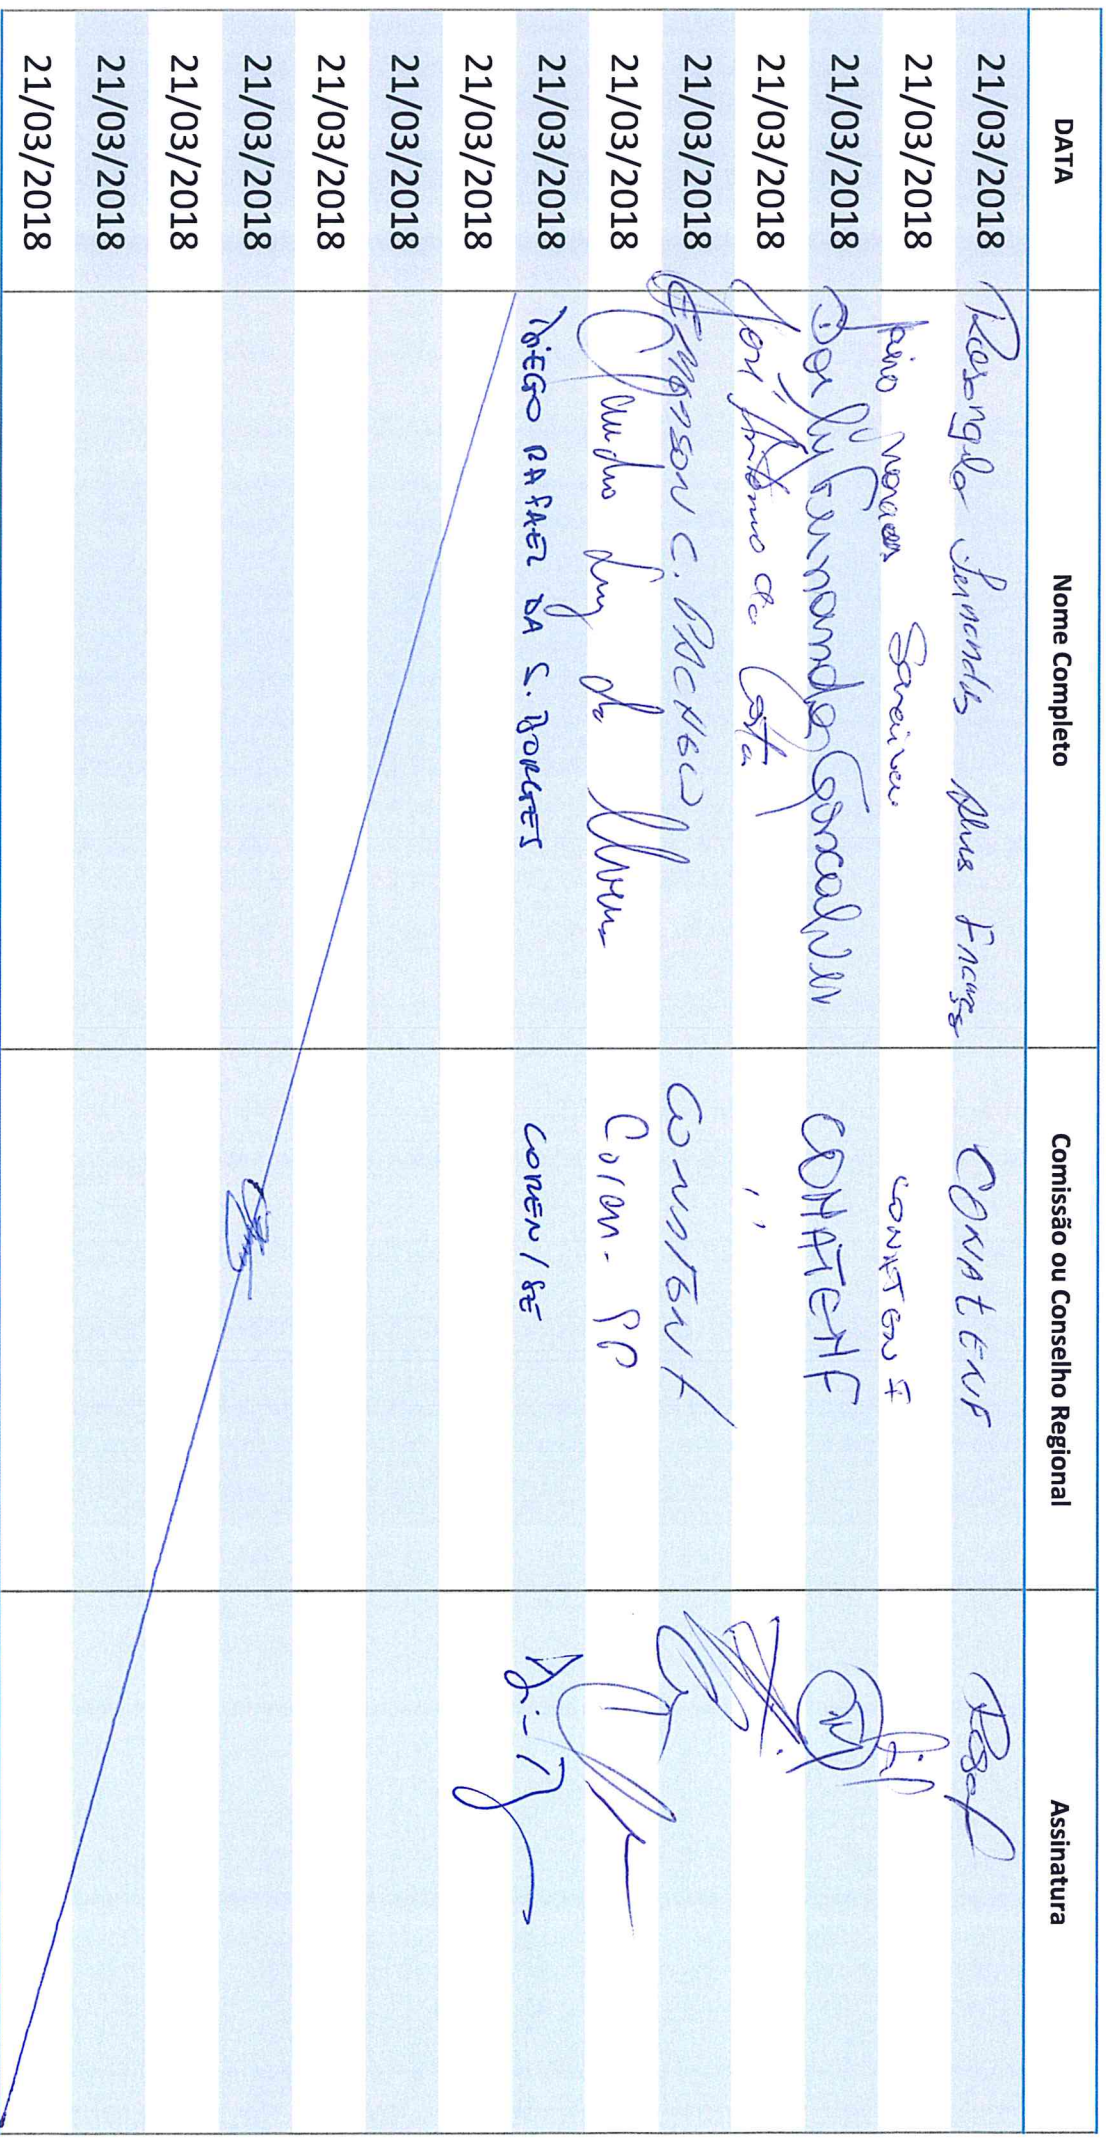 DATA Nome Completo Comissão ou Conselho Regional Assinatura
21/03/2018 Rosangela Fernandes Alves França CONATENF
21/03/2018 Jairo Moraes Saraiva CONATENF
21/03/2018 Dorly Fernanda Gonçalves CONATENF
21/03/2018 José Antônio da Costa ,,
21/03/2018 EMERSON C. PACHECO CONATENF
21/03/2018 Claudio Luiz da Coren-
21/03/2018 DIEGO RAFAEL DA S. BORGES COREN/SE
21/03/2018
21/03/2018
21/03/2018
21/03/2018
21/03/2018
21/03/2018
21/03/2018